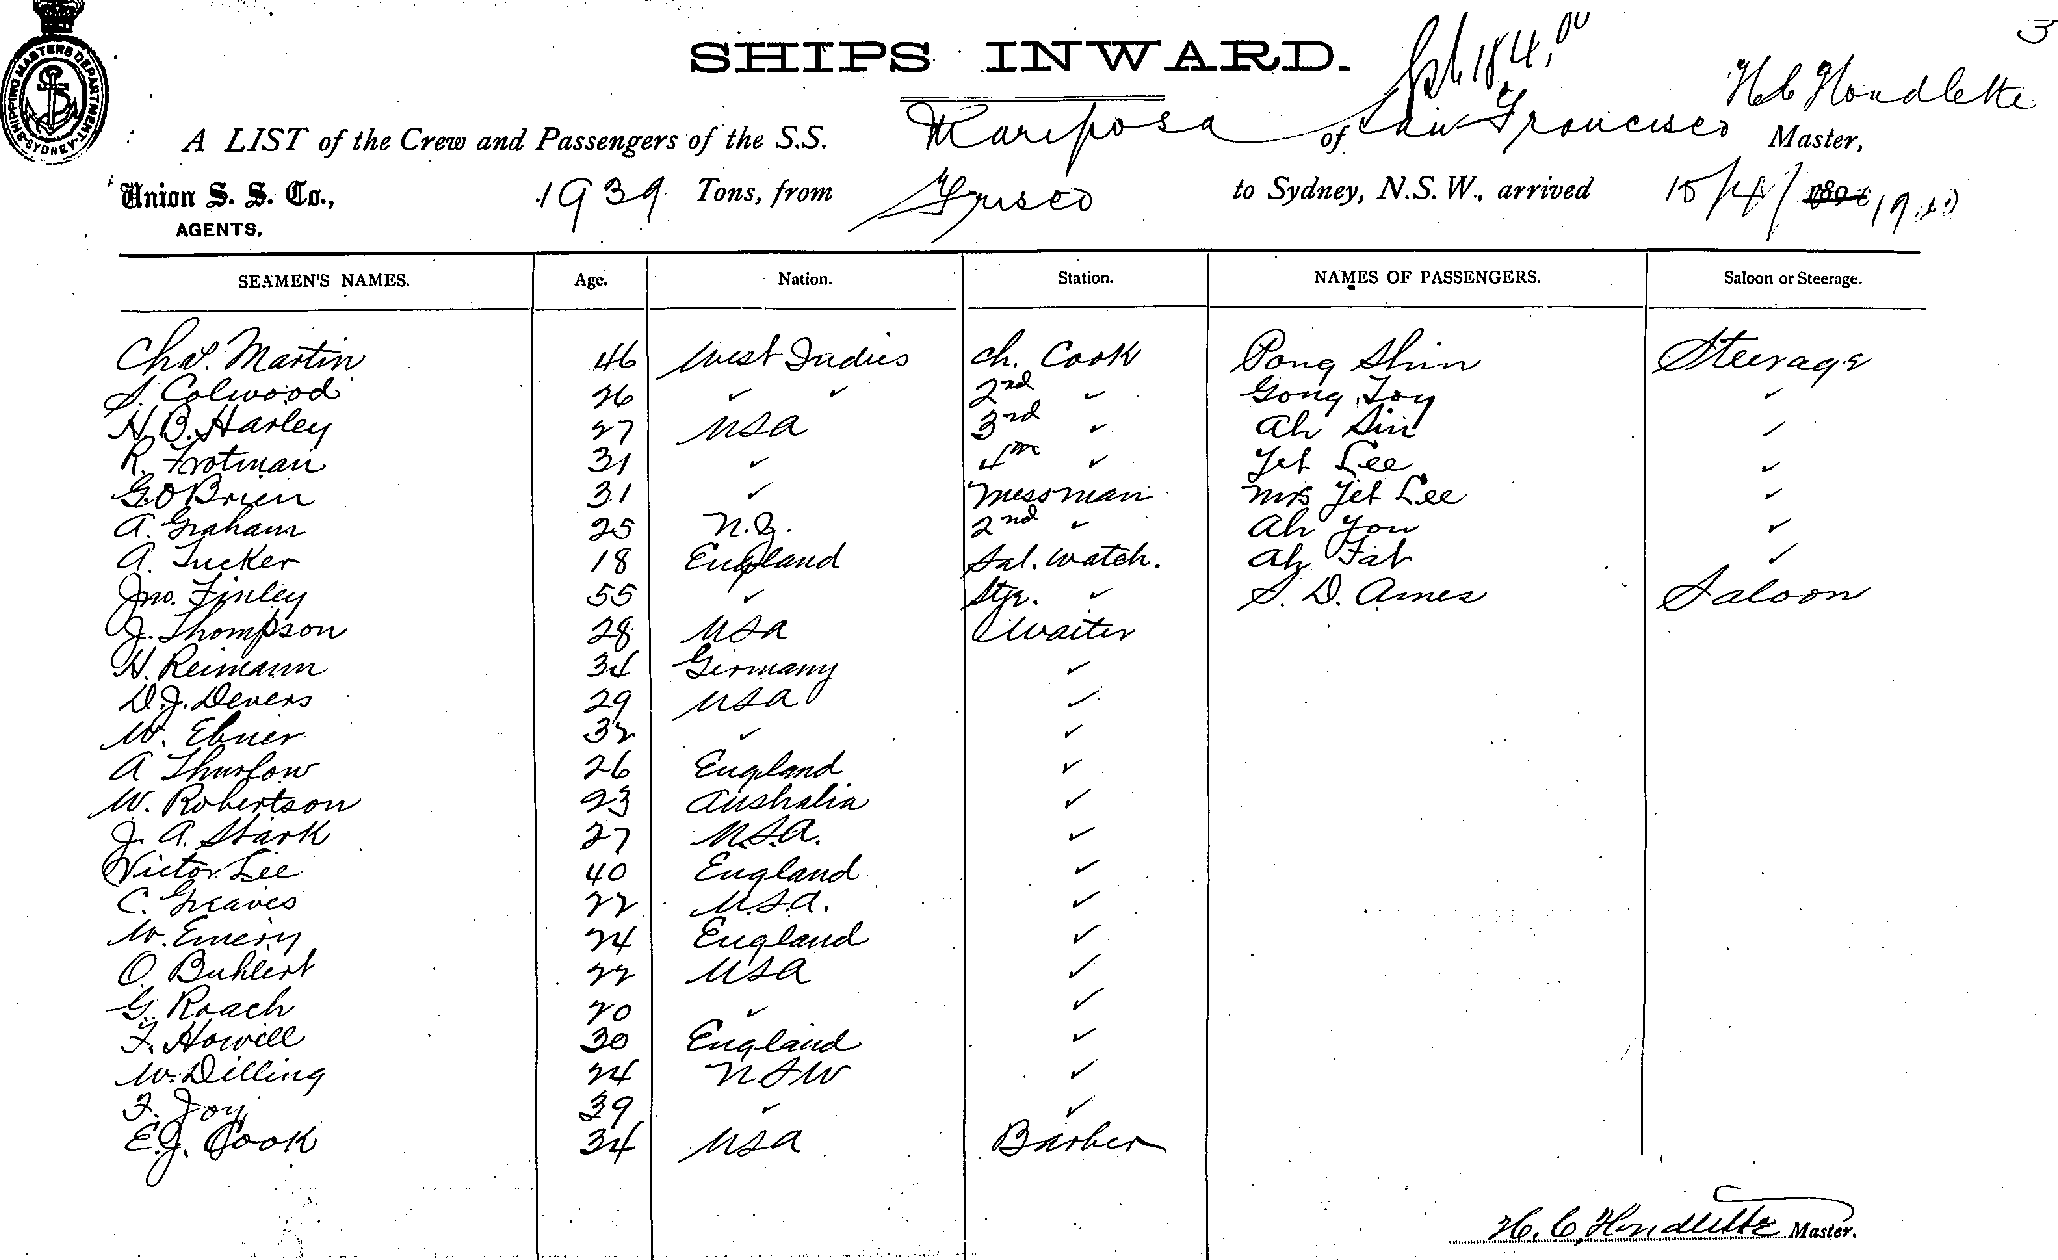 3
SHIPS INWARD.
SHIPPING MASTERS DEPARTMENT SYDNEY
A LIST of the Crew and Passengers of the S.S. Mariposa of San Francisco Master,
Union S. S. Co., 1939 Tons, from Frisco to Sydney, N.S.W., arrived
AGENTS.
SEAMEN'S NAMES. Age. Nation. Station. NAMES OF PASSENGERS. Saloon or Steerage.
Chas. Martin 46 West Indies Ch. Cook Pong Shin Steerage
S. Colwood 26 " " 2nd " Gong Toy "
H. B. Harley 27 USA 3rd " Ah Sin "
R. Trotman 31 " 4th " Yet Lee "
G. O'Brien 31 " Messman Mrs Yet Lee "
A. Graham 25 N.Z. 2nd " Ah You "
A. Tucker 18 England Sal. Watch. Ah Fat "
Jno. Finley 55 " Stge. " S. D. Ames Saloon
J. Thompson 28 USA Waiter
H. Reimann 34 Germany "
D. J. Devers 29 USA "
W. Ebner 32 " "
A Thurlow 26 England "
W. Robertson 23 Australia "
J. A. Stark 27 U.S.A. "
Victor Lee 40 England "
C. Greaves 22 U.S.A. "
W. Emery 24 England "
O. Buhlert 22 USA "
G. Roach 20 " "
F. Howill 30 England "
W. Dilling 24 NSW "
F. Joy 39 " "
E. J. Cook 34 USA Barber
Master.